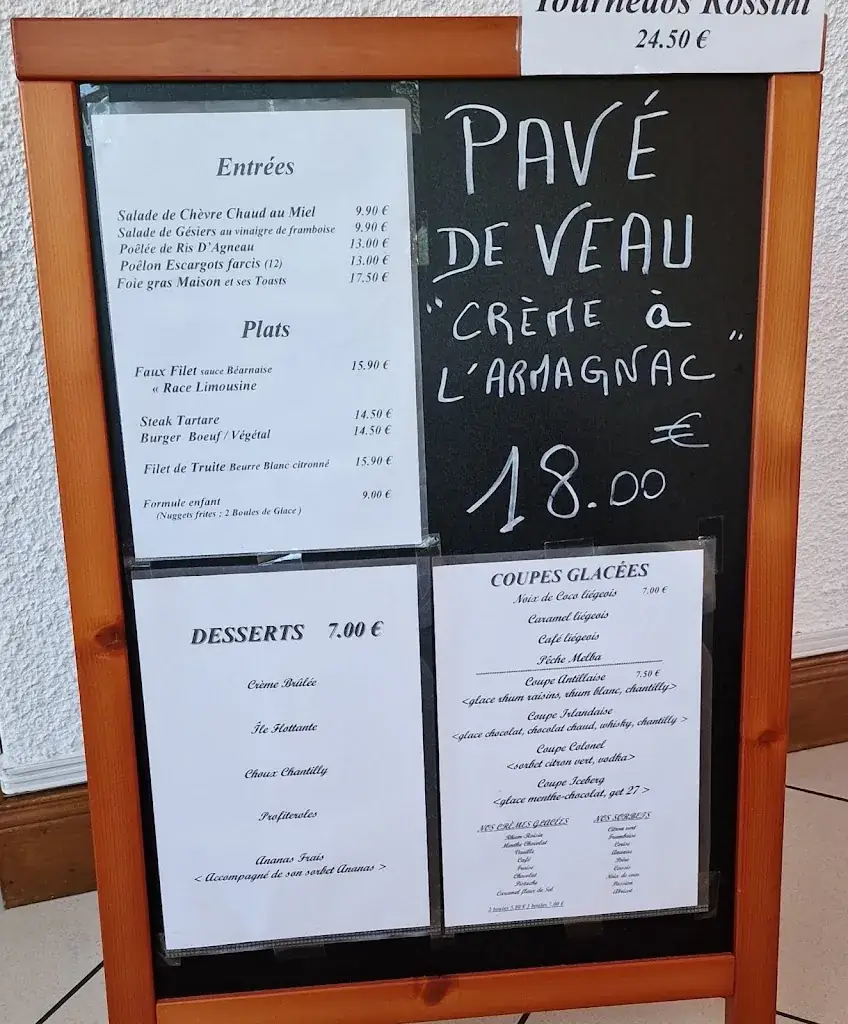 Tournedos Rossini
24.50 €
Entrées
Salade de Chèvre Chaud au Miel 9.90 €
Salade de Gésiers au vinaigre de framboise 9.90 €
Poêlée de Ris D'Agneau 13.00 €
Poêlon Escargots farcis (12) 13.00 €
Foie gras Maison et ses Toasts 17.50 €
Plats
Faux Filet sauce Béarnaise 15.90 €
« Race Limousine
Steak Tartare 14.50 €
Burger Boeuf / Végétal 14.50 €
Filet de Truite Beurre Blanc citronné 15.90 €
Formule enfant 9.00 €
(Nuggets frites ; 2 Boules de Glace )
PAVÉ
DE VEAU
"CRÈME à
L'ARMAGNAC"
€
18.00
DESSERTS 7.00 €
Crème Brûlée
Île Flottante
Choux Chantilly
Profiteroles
Ananas Frais
< Accompagné de son sorbet Ananas >
COUPES GLACÉES
Noix de Coco liégeois 7.00 €
Caramel liégeois
Café liégeois
Pêche Melba
Coupe Antillaise 7.50 €
<glace rhum raisins, rhum blanc, chantilly>
Coupe Irlandaise
<glace chocolat, chocolat chaud, whisky, chantilly >
Coupe Colonel
<sorbet citron vert, vodka>
Coupe Iceberg
<glace menthe-chocolat, get 27 >
NOS CRÈMES GLACÉES
Rhum-Raisin
Menthe Chocolat
Vanille
Café
Chocolat
Pistache
Caramel fleur de Sel
NOS SORBETS
Citron vert
Framboise
Cerise
Ananas
Poire
Cassis
Noix de coco
Passion
Abricot
2 boules 5.00 € 3 boules 7.00 €